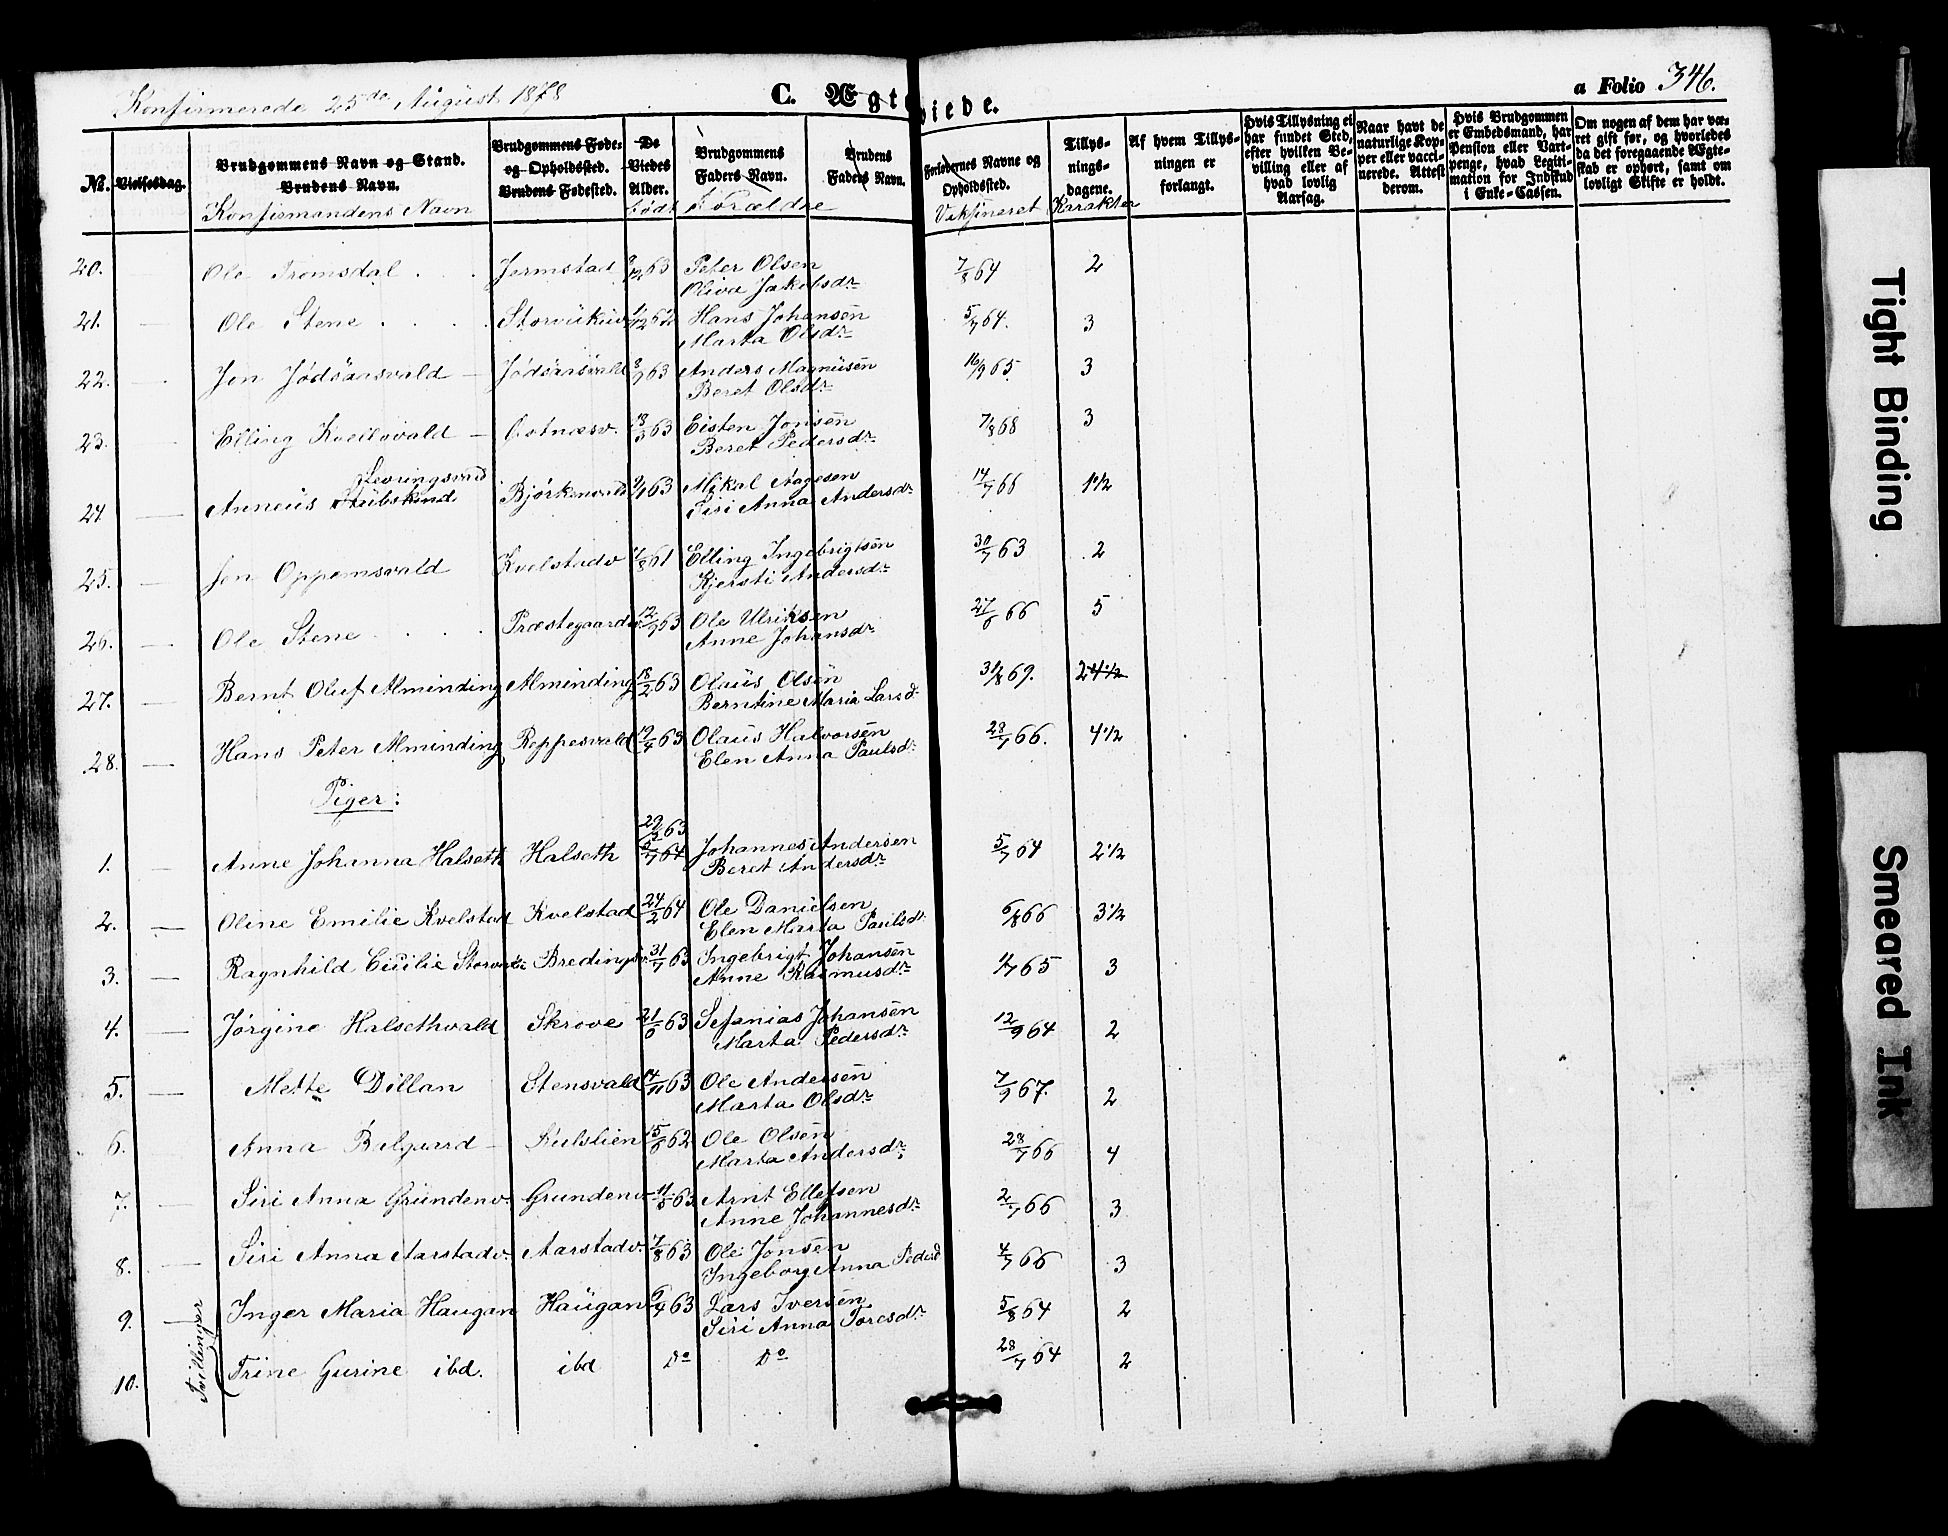 Konfirmerede 25de August 1878
C. Ægteviede.
a Folio 346.
No. Vielsesdag. Brudgommens Navn og Stand. Brudens Navn. Brudgommens Føde- og Opholdssted. Brudens Fødested. De Viedes Alder. Brudgommens Faders Navn. Brudens Faders Navn. Forlovernes Navne og Opholdssted. Tillysningsdagene. Af hvem Tillysningen er forlangt. Hvis Tillysning ei har fundet Sted, efter hvilken Bevilling eller af hvad lovlig Aarsag. Naar havt de naturlige Kopper eller vaccinerede. Attest derom. Hvis Brudgommen er Embedsmand, har Pension eller Vartpenge, hvad Legitimation for Indskud i Enke-Cassen. Om nogen af dem har været gift før, og hvorledes da det foregaaende Ægteskab er ophørt, samt om lovligt Skifte er holdt.
Konfirmandens Navn Født Forældre Vaksineret Karakter
20. Ole Tromsdal Jermstad 63 Peter Olsen 7/8 64 2
Oliva Jakobsdr
21. Ole Stene Storvukuv 62 Hans Johansen 5/7 64. 3
Marta Olsdr
22. Jon Jødsaasvald Jødsaasvald 8/9 63 Anders Magnusen 16/9 65 3
Beret Olsdr
23. Elling Kveilovald Ostnæsv. 18/3 63 Eisten Jonsen 7/8 68 3
Beret Pedersdr
Levringsvald
24 Anneus Bjørkenvald 63 Mikal Aagesen 14/7 66 1 1/2
Siri Anna Andersdr
25. Jon Oppemsvald Kvelstadv 61 Elling Ingebrigtsen 30/7 63 2
Kjersti Andersdr
26. Ole Stene Præstegaardsv. 12/9 63 Ole Ulriksen 27/6 66 5
Anne Johansdr
27. Bernt Oluf Alminding Alminding 18/2 63 Olaus Olsen 31/8 69. 2 4 1/2
Berntine Maria Larsd.
28. Hans Peter Alminding Reppesvald 12/4 63 Olaus Halvorsen 28/7 66. 4 1/2
Elen Anna Paulsdr
Piger:
29/5 63
1. Anne Johanna Halseth Halseth 5/7 64 Johannes Andersen 5/7 64 2 1/2
Beret Andersdr
2. Oline Emilie Kvelstad Kvelstad 24/2 64 Ole Danielsen 6/8 66 3 1/2
Elen Marta Paulsdr
3. Ragnhild Cicilie Bredingsv. 31/7 63 Ingebrigt Johansen 4/7 65 3
Anne Rasmusdr
4. Jørgine Halsethvald Skrove 21/6 63 Sefanias Johansen 12/9 64 2
Marta Pedersdr
5. Mette Dillan Stensvald 4/11 63 Ole Andersen 7/9 67. 2
Marta Olsdr
6. Anna Balgaard Kulslien 15/6 62 Ole Olsen 28/7 66 4
Marta Andersdr
7. Siri Anna Grundenv. Grundenv 11/5 63 Arnt Ellefsen 2/7 66 3
Anne Johannesdr
8. Siri Anna Aarstadv. Aarstadv. 7/8 63 Ole Jonsen 4/7 66 3
Ingeborg Anna Pedersd
9. Inger Maria Haugan Haugan 6/4 63 Lars Iversen 5/8 64 2
Siri Anna Toresdr
10. Tvillinger Trine Gurine ibd. ibd Do Do 28/7 64 2
Tight Binding
Smeared Ink